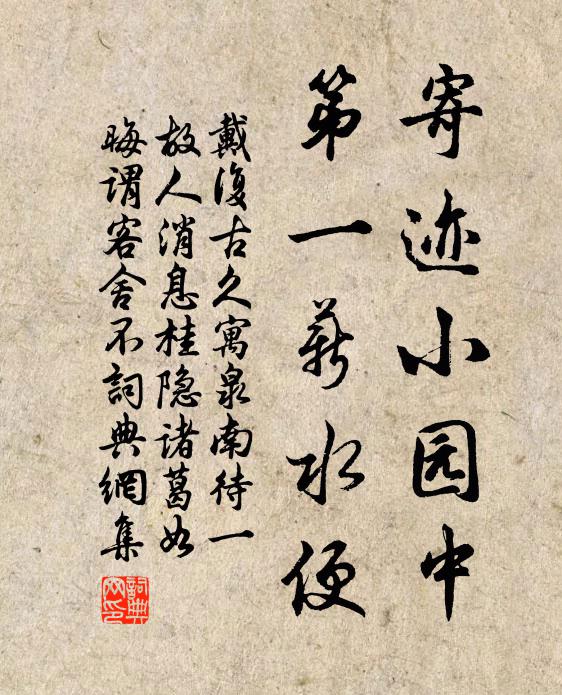 寄迹小园中
第一薪水便
戴復古久寓泉南待一
故人消息桂隐諸葛如
晦谓客舍不詞典網集
詞典网印